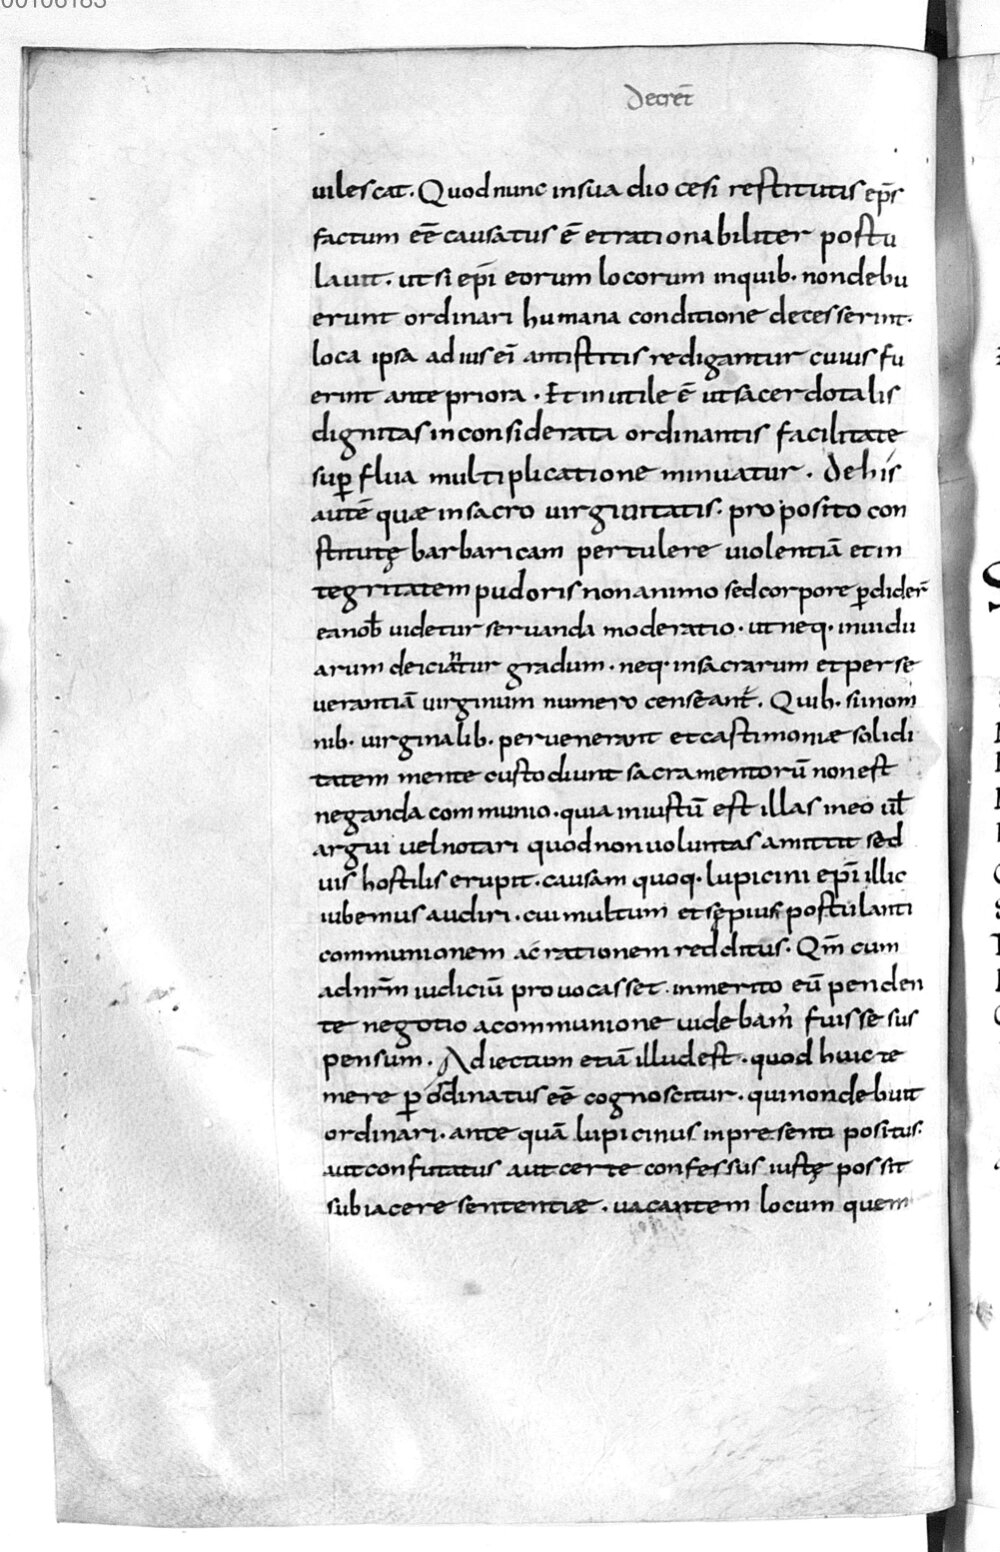 00106183
Decret̄
uilescat. Quod nunc in sua diocesi restitutis ep̄s
factum eē causatus ē et rationabiliter postu
lauit. ut si ep̄i eorum locorum in quib. non debu
erunt ordinari humana conditione decesserint.
loca ipsa ad ius eī antistitis redigantur cuius fu
erint ante priora. Et inutile ē ut sacerdotalis
dignitas inconsiderata ordinantis facilitate
suꝑflua multiplicatione minuatur. de his
autē quæ in sacro uirginitatis. proposito con
stitutę barbaricam pertulere uiolentiā et in
tegritatem pudoris non animo sed corpore ꝑdider̄
ea nob̄ uidetur seruanda moderatio. ut neq. in uidu
arum deiciantur gradum. neq. in sacrarum et perse
uerantiā uirginum numero censeant̄. Quib. si in om
nib. uirginalib. peruenerant et castimoniæ solidi
tatem mente custodiunt sacramentorū non est
neganda communio. quia iniustū est illas in eo ul̄
argui uel notari quod non uoluntas amittit sed
uis hostilis erupit. causam quoq. lupicini ep̄i illic
iubemus audiri. cui multum et sępius postulanti
communionem ac rationem redditus. Qm̄ cum
ad nr̄m iudiciū prouocasset. inmerito eū penden
te negotio a communione uidebam̄ fuisse sus
pensum. Adiectum etiā illud est. quod huic te
mere ꝑ ordinatus eē cognoscitur. qui non debuit
ordinari. ante quā lupicinus in presenti positus.
aut confutatus aut certe confessus iustę possit
subiacere sententiæ. uacantem locum quem